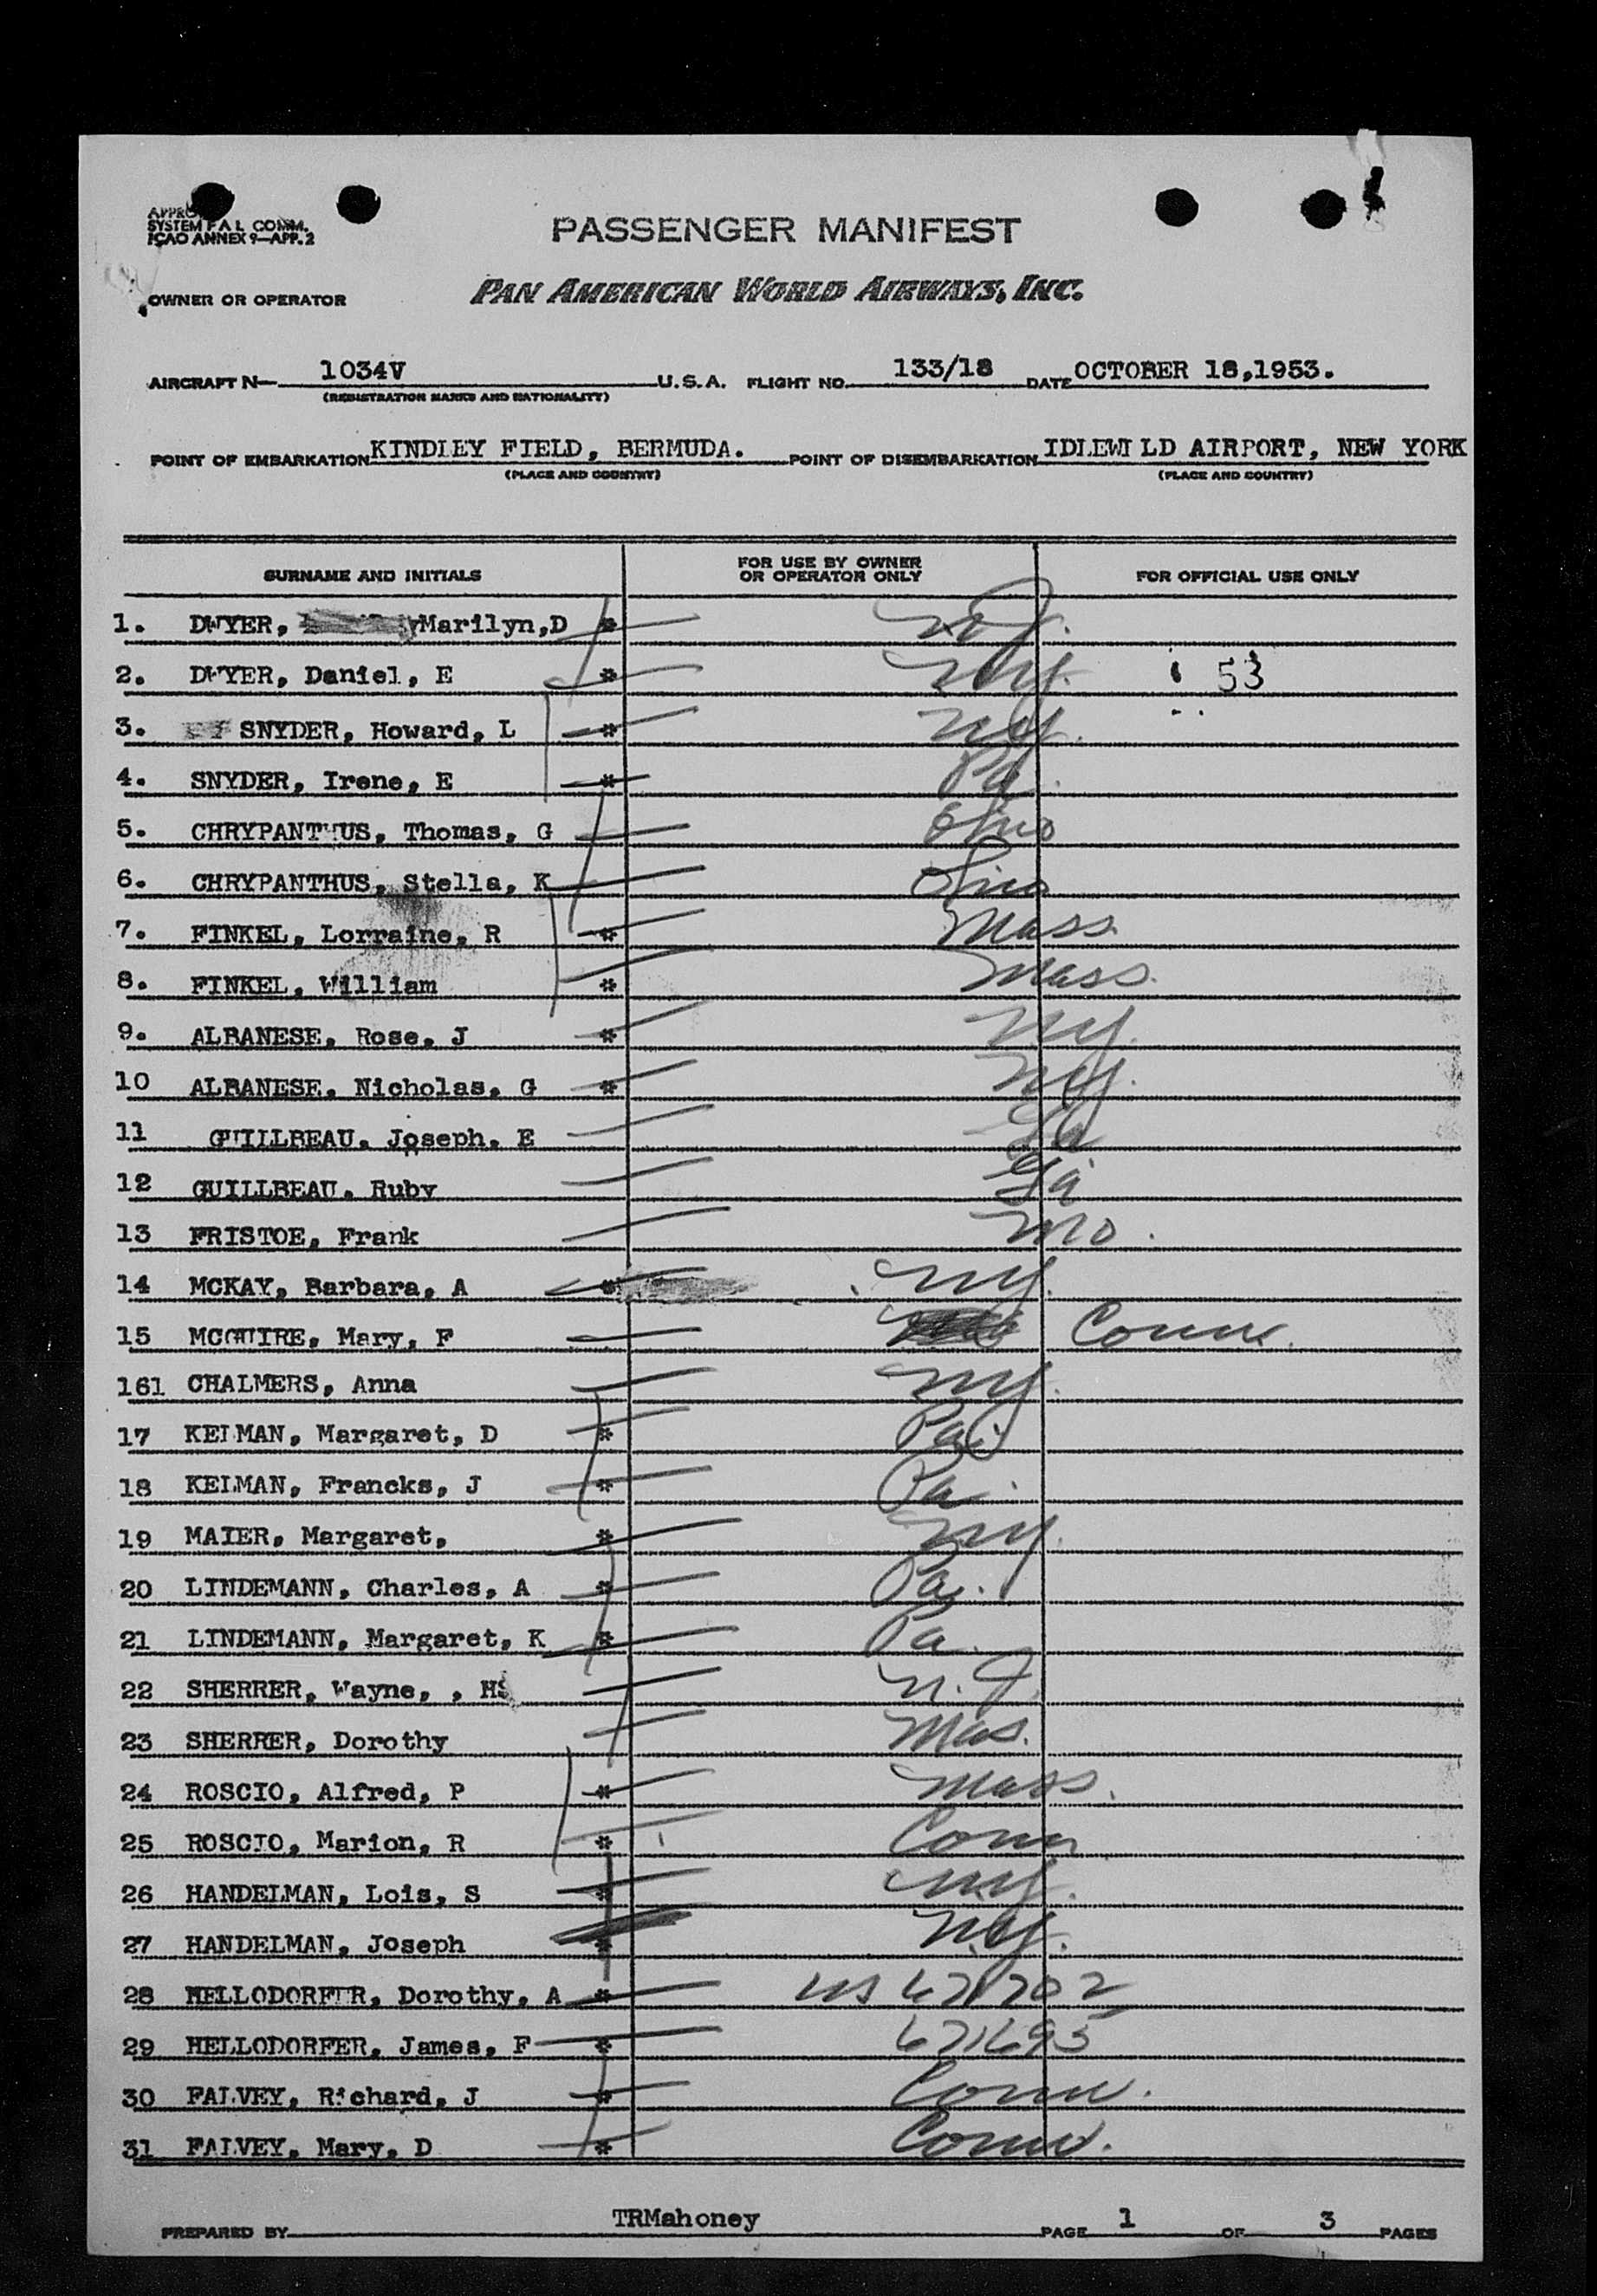 SYSTEM F A L COMM.
ICAO ANNEX 9—APP. 2
PASSENGER MANIFEST
OWNER OR OPERATOR PAN AMERICAN WORLD AIRWAYS, INC.
AIRCRAFT N— 1034V U.S.A. FLIGHT NO. 133/18 DATE OCTOBER 18,1953.
(REGISTRATION MARKS AND NATIONALITY)
POINT OF EMBARKATION KINDLEY FIELD, BERMUDA. POINT OF DISEMBARKATION IDLEWILD AIRPORT, NEW YORK
(PLACE AND COUNTRY) (PLACE AND COUNTRY)
SURNAME AND INITIALS FOR USE BY OWNER OR OPERATOR ONLY FOR OFFICIAL USE ONLY
1. DWYER, Marilyn,D *
2. DWYER, Daniel, E * NY. 53
3. SNYDER, Howard, L * NY.
4. SNYDER, Irene, E * Pa.
5. CHRYPANTHUS, Thomas, G Ohio
6. CHRYPANTHUS, Stella, K Ohio
7. FINKEL, Lorraine, R * Mass.
8. FINKEL, William * Mass.
9. ALBANESE, Rose, J * NY.
10 ALBANESE, Nicholas, G * NY.
11 GUILLBEAU, Joseph, E
12 GUILLBEAU, Ruby
13 FRISTOE, Frank Mo.
14 MCKAY, Barbara, A * NY.
15 MCGUIRE, Mary, F Conn.
161 CHALMERS, Anna NY.
17 KELMAN, Margaret, D * Pa.
18 KELMAN, Francks, J * Pa.
19 MAIER, Margaret, * NY.
20 LINDEMANN, Charles, A * Pa.
21 LINDEMANN, Margaret, K * Pa.
22 SHERRER, Wayne, , HS N.J.
23 SHERRER, Dorothy Mas.
24 ROSCIO, Alfred, P * Mass.
25 ROSCIO, Marion, R * Conn
26 HANDELMAN, Lois, S * NY.
27 HANDELMAN, Joseph * NY.
28 HELLODORFER, Dorothy, A * US 671702
29 HELLODORFER, James, F * 671695
30 FALVEY, Richard, J * Conn.
31 FALVEY, Mary, D * Conn.
PREPARED BY TRMahoney PAGE 1 OF 3 PAGES